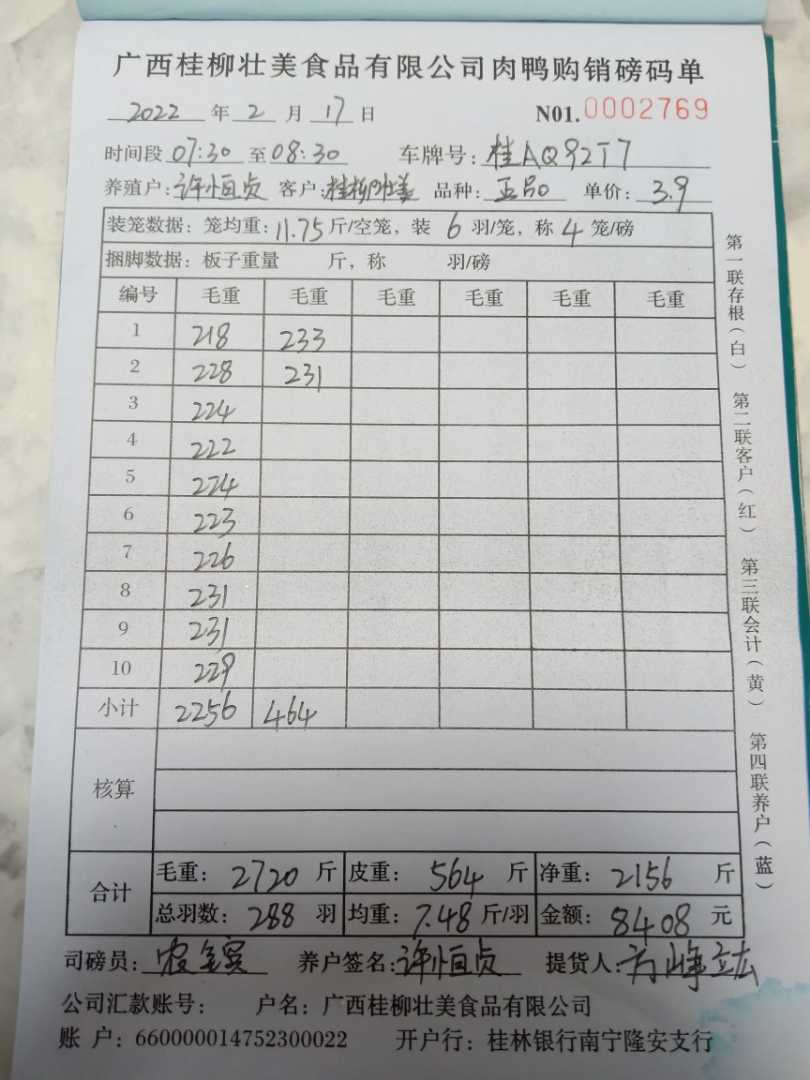 广西桂柳壮美食品有限公司肉鸭购销磅码单
2022 年 2 月 17 日 N01. 0002769
时间段 07:30 至 08:30 车牌号: 桂AQ92T7
养殖户: 许恒贞 客户: 桂柳壮美 品种: 正品 单价: 3.9
装笼数据: 笼均重: 11.75 斤/空笼, 装 6 羽/笼, 称 4 笼/磅
捆脚数据: 板子重量 斤, 称 羽/磅
编号 毛重 毛重 毛重 毛重 毛重 毛重
1 218 233
2 228 231
3 224
4 222
5 224
6 223
7 226
8 231
9 231
10 229
小计 2256 464
核算
合计
毛重: 2720 斤 皮重: 564 斤 净重: 2156 斤
总羽数: 288 羽 均重: 7.48 斤/羽 金额: 8408 元
司磅员: 养户签名: 许恒贞 提货人:
公司汇款账号: 户名: 广西桂柳壮美食品有限公司
账 户: 660000014752300022 开户行: 桂林银行南宁隆安支行
第一联存根(白) 第二联客户(红) 第三联会计(黄) 第四联养户(蓝)